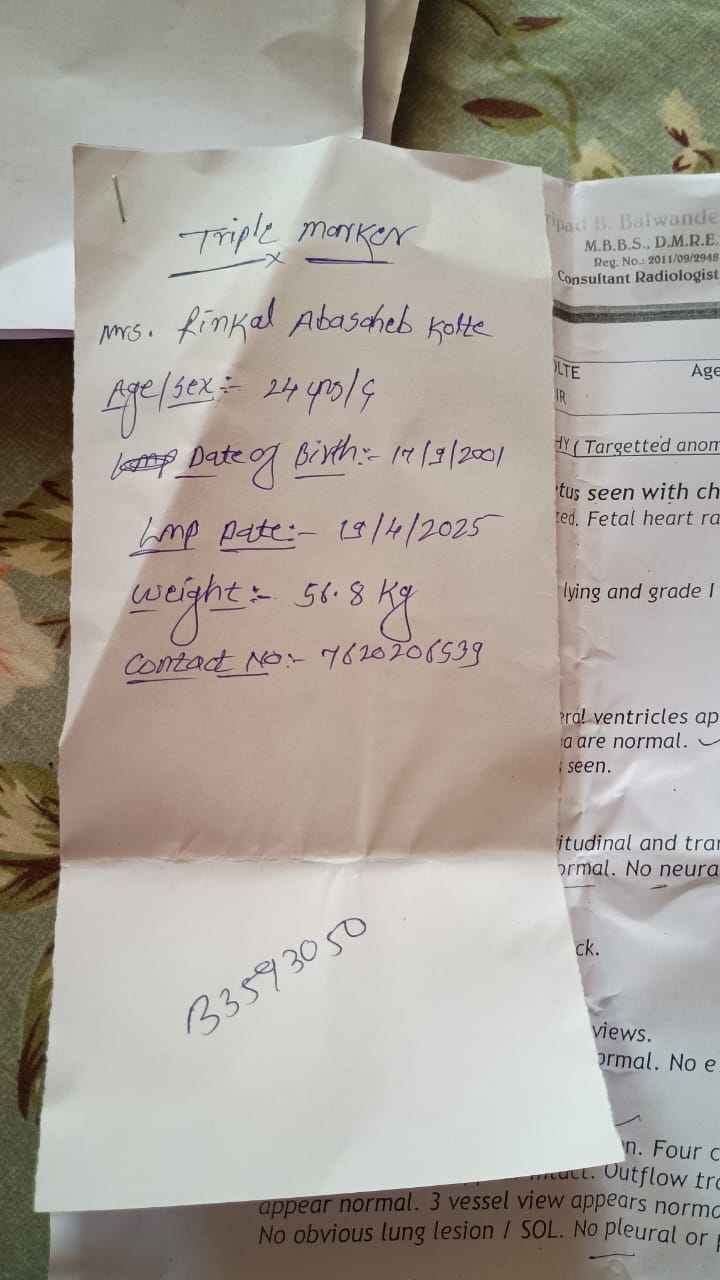 Triple marker
Mrs. Rinkal Abasaheb Kolte
Age/Sex:- 24 yrs/
Date of Birth:- 17/9/2001
Lmp Date:- 19/4/2025
Weight:- 56.8 Kg
Contact No:- 7620206539
B3593050
ripad B. Balwande
M.B.B.S., D.M.R.E.
Reg. No.: 2011/09/2948
Consultant Radiologist
OLTE Age
IR
HY ( Targetted anom
tus seen with ch
ed. Fetal heart ra
lying and grade I
eral ventricles ap
a are normal.
seen.
itudinal and tran
ormal. No neura
ck.
views.
ormal. No e
n. Four c
Outflow tra
appear normal. 3 vessel view appears norma
No obvious lung lesion / SOL. No pleural or p